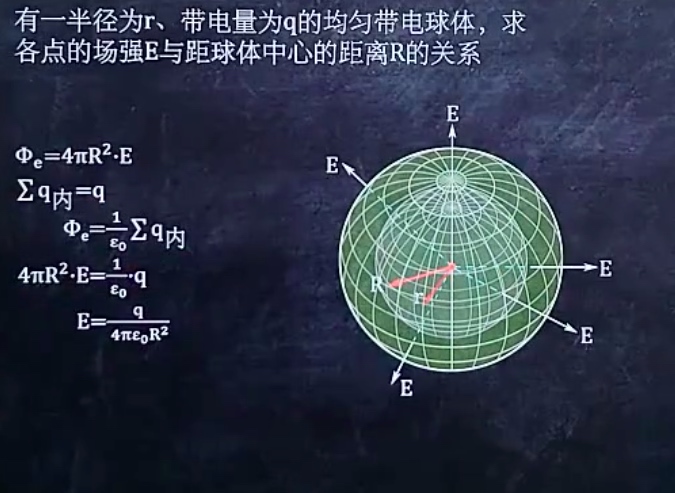 有一半径为r、带电量为q的均匀带电球体，求
各点的场强E与距球体中心的距离R的关系
Φₑ=4πR²·E
∑q内=q
Φₑ=1/ε₀ ∑q内
4πR²·E=1/ε₀·q
E=q/4πε₀R²
E
E
E
R
r
E
E